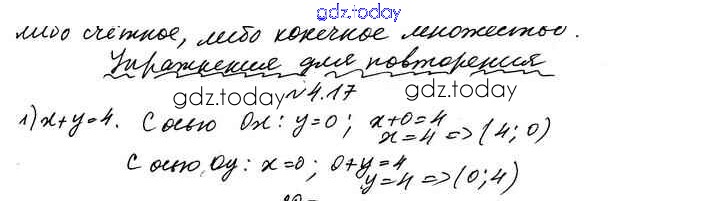 gdz.today
либо счётное, либо конечное множество.
Упражнения для повторения
gdz.today №4.17 gdz.today
1) x+y=4. С осью Ox: y=0; x+0=4
x=4 => (4; 0)
С осью Oy: x=0; 0+y=4
y=4 => (0; 4)